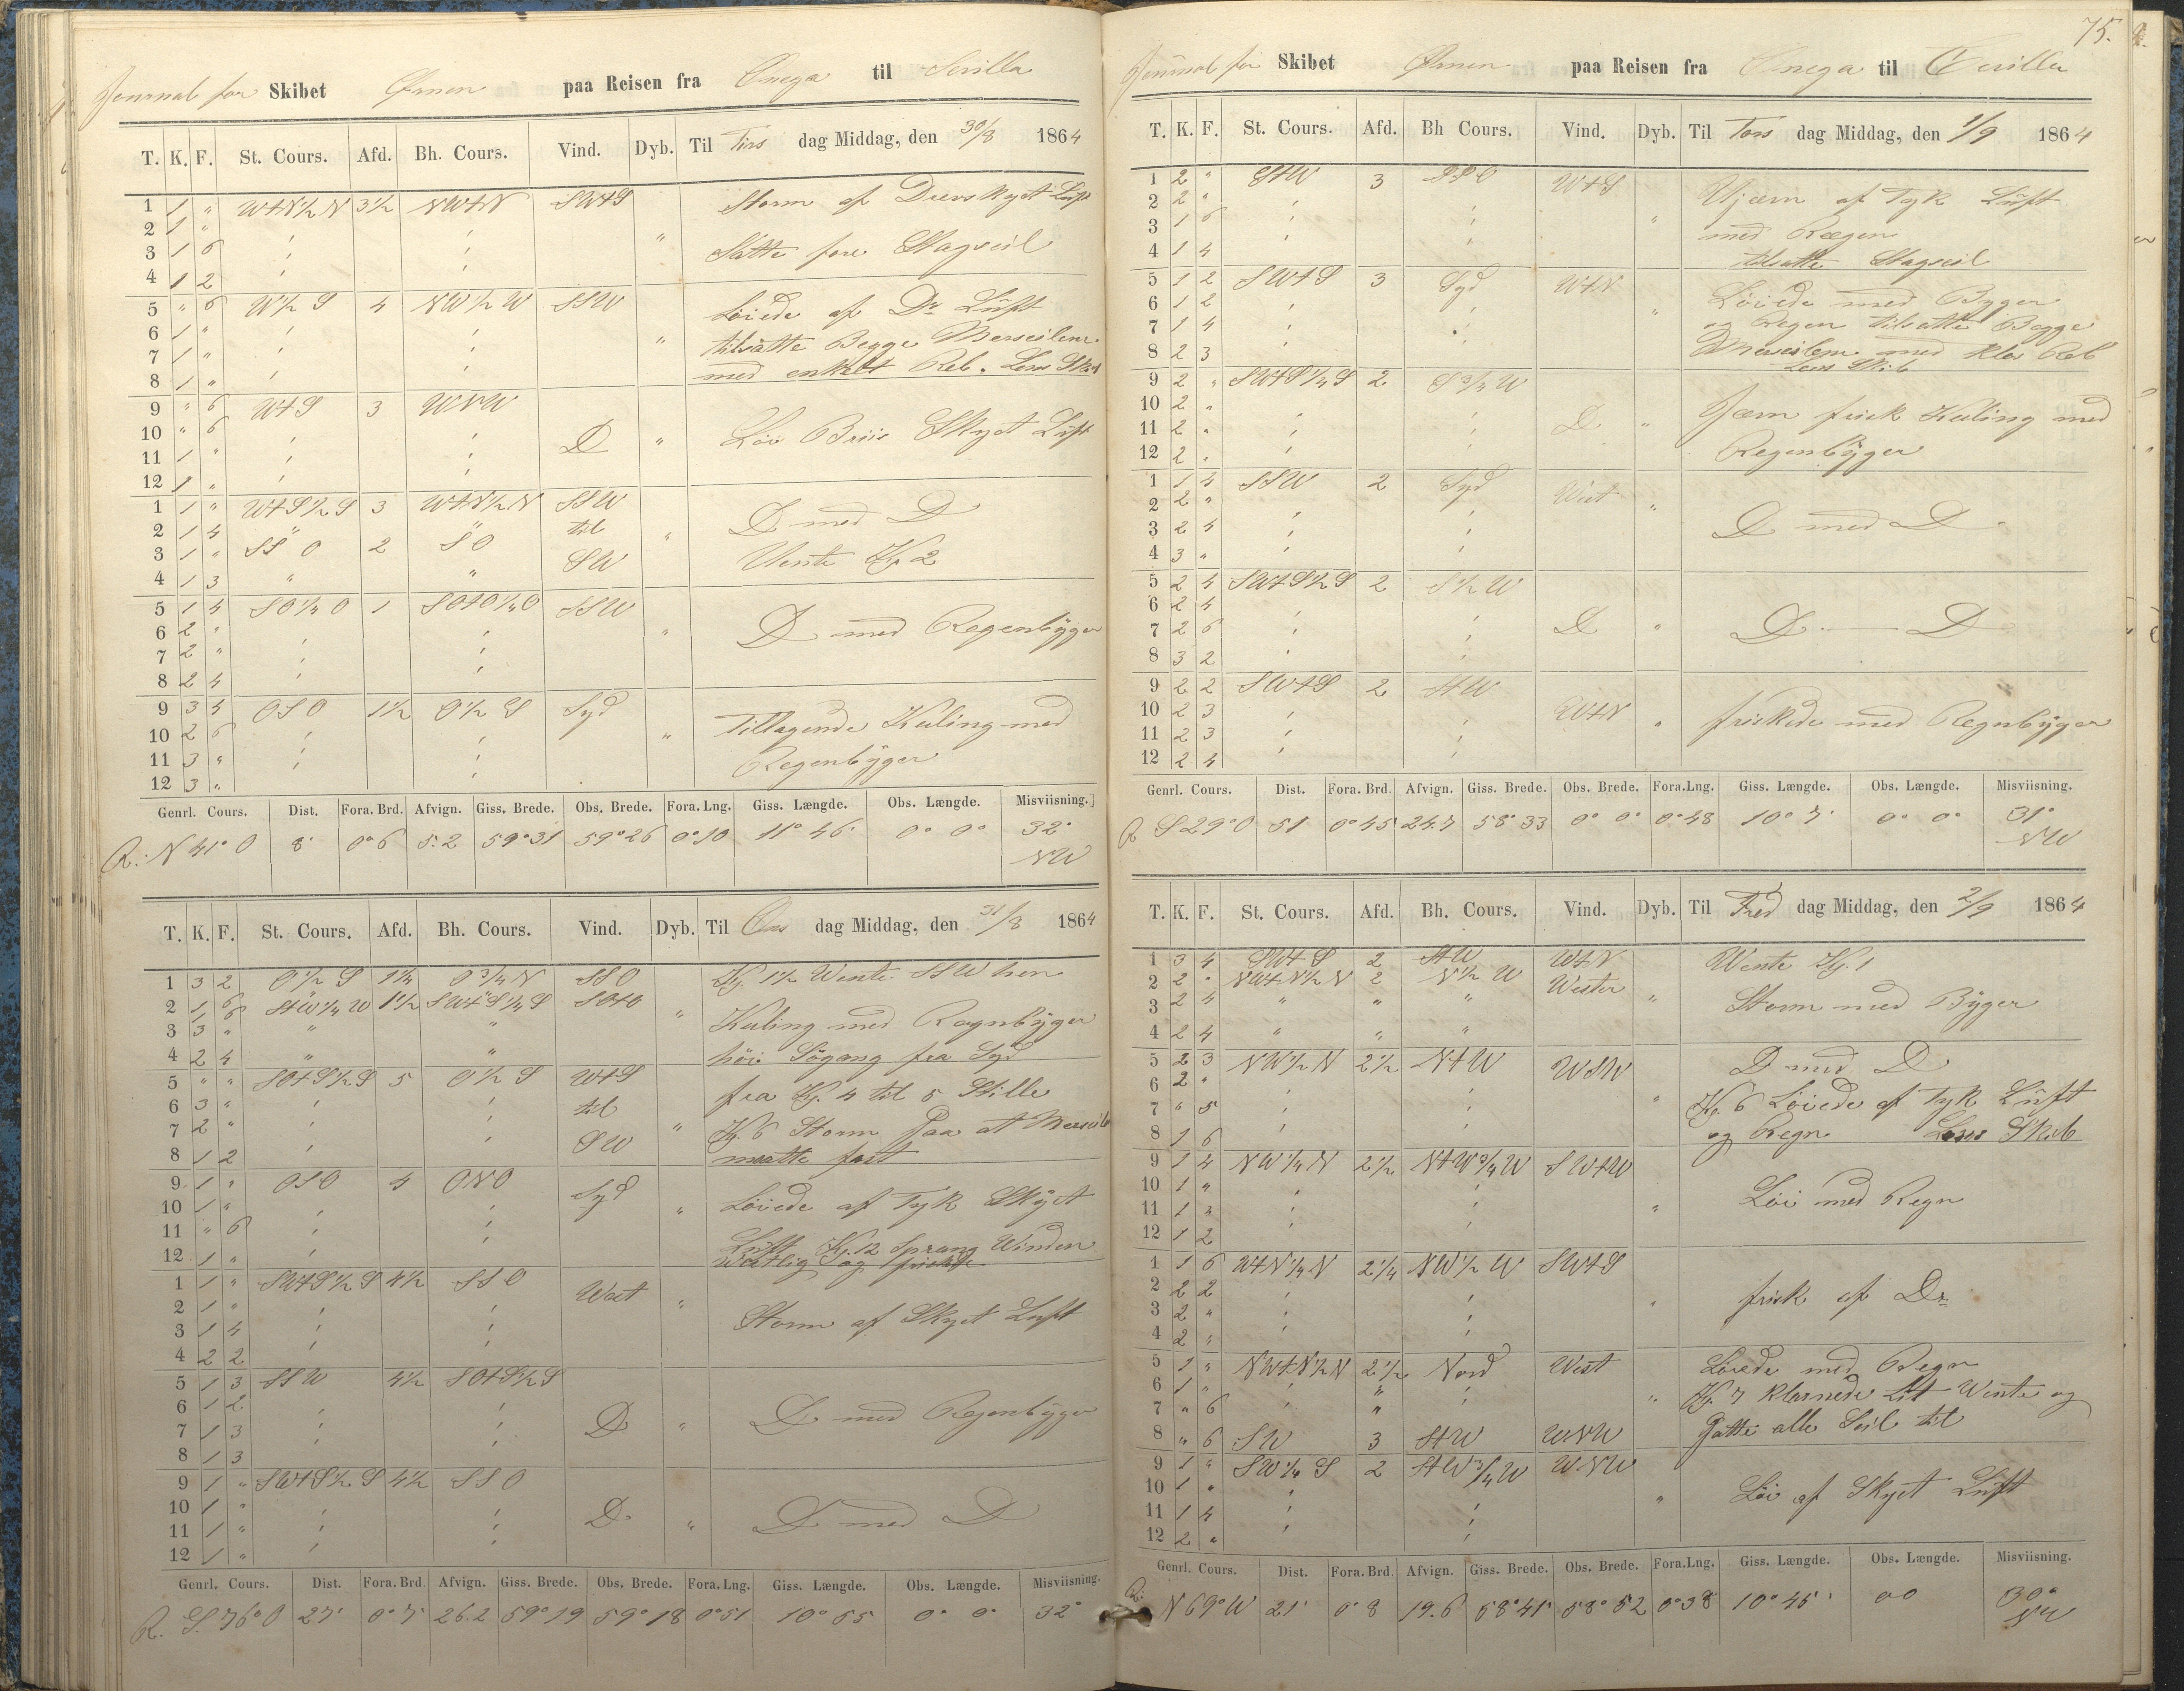 75.
Journal for Skibet Ørnen paa Reisen fra Onega til Sevilla
T. K. F. St. Cours. Afd. Bh. Cours. Vind. Dyb. Til Tirs dag Middag, den 30/8 1864
1 1 " WtN½N 3½ NWtN SWtS Storm af Diverskyet Luft
2 1 "
3 1 6 " Satte fore Stagseil
4 1 2
5 " 6 W½S 4 NW½W SSW Løiede af Do Luft
6 1 " " tilsatte Begge Merseilene
7 1 " med enkelt Reb. Lens Skib
8 1 "
9 " 6 WtS 3 WNW
10 " 6 D " Løi Briis Skyet Luft
11 1 "
12 1 "
1 1 " WtS½S 3 WtN½N SSW
2 1 4 " " til " D med D
3 1 " SSO 2 SO SW Vente Kl 2
4 1 3 " "
5 1 4 SO¼O 1 SOtO¼O SSW
6 2 " " D med Regenbyger
7 2 "
8 2 4
9 3 4 OSO 1½ O½S Syd
10 2 6 " Tiltagende Kuling med
11 3 " Regenbyger
12 3 "
Genrl. Cours. Dist. Fora. Brd. Afvign. Giss. Brede. Obs. Brede. Fora. Lng. Giss. Længde. Obs. Længde. Misviisning.
R: N 41° O 8' 0° 6 5.2 59° 31 59° 26 0° 10 11° 46' 0° 0° 32° NW
T. K. F. St. Cours. Afd. Bh. Cours. Vind. Dyb. Til Ons dag Middag, den 31/8 1864
1 3 2 O½S 1¼ O¾N SSO Kl. 1½ Vente SSW hen
2 1 6 StW¼W 1½ SWtS¼S SOtO "
3 3 " " " Kuling med Regnbyger
4 2 4 " " høi Søgang fra Syd
5 " " SOtS½S 5 O½S WtS fra Kl. 4 til 5 Stille
6 3 " til
7 2 " " Kl. 6 Storm Paa at Merseile
8 1 2 SW maatte fast
9 1 " OSO 4 ONO Syd
10 1 " " Løiede af Tyk Skyet
11 " 6 Luft Kl. 12 Sprang Vinden
12 1 " Westlig og friskede
1 1 " SWtS½S 4½ SSO West
2 1 " "
3 1 4 Storm af Skyet Luft
4 2 2
5 1 3 SSW 4½ SOtS½S
6 1 2
7 1 3 D " D med Regenbyger
8 1 3
9 1 " SWtS½S 4½ SSO
10 1 "
11 1 " D " D med D
12 1 "
Genrl. Cours. Dist. Fora. Brd. Afvign. Giss. Brede. Obs. Brede. Fora. Lng. Giss. Længde. Obs. Længde. Misviisning.
R. S. 76° O 27' 0° 7' 26.2 59° 19 59° 18 0° 51 10° 55 0° 0° 32°
Journal for Skibet Ørnen paa Reisen fra Onega til Sevilla
T. K. F. St. Cours. Afd. Bh Cours. Vind. Dyb. Til Tors dag Middag, den 1/9 1864
1 2 " StW 3 SSO WtS
2 2 " Stjærn af Tyk Luft
3 1 6 " med Regen
4 1 4 tilsatte Stagseil
5 1 2 SWtS 3 Syd WtN Løiede med Byger
6 1 2 " og Regen tilsatte Begge
7 1 4 Merseilene med Klos Reb
8 2 3 Lens Skib
9 2 " SWtS¼S 2 S¾W
10 2 " Jævn frisk Kuling med
11 2 " D " Regenbyger
12 2 "
1 1 4 SSW 2 Syd West
2 2 " "
3 2 4 D med D
4 3 "
5 2 4 SWtS½S 2 S½W
6 2 4
7 2 6 D " D — D
8 3 2
9 2 2 SWtS 2 StW
10 2 3 WtN " friskede med Regnbyger
11 2 3
12 2 4
Genrl. Cours. Dist. Fora. Brd. Afvign. Giss. Brede. Obs. Brede. Fora. Lng. Giss. Længde. Obs. Længde. Misviisning.
R S 29° O 51 0° 45 24.7 58° 33 0° 0° 0° 48 10° 7' 0° 0° 31° NW
T. K. F. St. Cours. Afd. Bh. Cours. Vind. Dyb. Til Fred dag Middag, den 2/9 1864
1 3 4 SWtS 2 StW WtN Wente Kl. 1
2 2 " NWtN½N 2 N½W Wester
3 2 4 " " " " Storm med Byger
4 2 4 " " "
5 2 3 NW½N 2½ NtW WSW D med D
6 2 "
7 " 5 " Kl. 6 Løiede af Tyk Luft
8 1 6 og Regn Lens Skib
9 1 4 NW¼N 2½ NtW¾W SWtW
10 1 " Løi med Regn
11 1 " "
12 1 2
1 1 6 WtN¼N 2¼ NW½W SWtS
2 2 2 frisk af Do
3 2 " "
4 2 "
5 1 " NWtN½N 2½ Nord West Løiede med Regn
6 1 " " Kl. 7 Klarnede Lit Wente og
7 " 6 " "
8 " 6 SW 3 StW WNW Satte alle Seil til
9 1 " SW¼S 2 StW¾W WNW
10 1 " " Løi af Skyet Luft
11 1 4
12 2 "
Genrl. Cours. Dist. Fora. Brd. Afvign. Giss. Brede. Obs. Brede. Fora. Lng. Giss. Længde. Obs. Længde. Misviisning.
R: N 69° W 21' 0° 8 19.6 58° 41' 58° 52 0° 38 10° 45' 00 30° NW